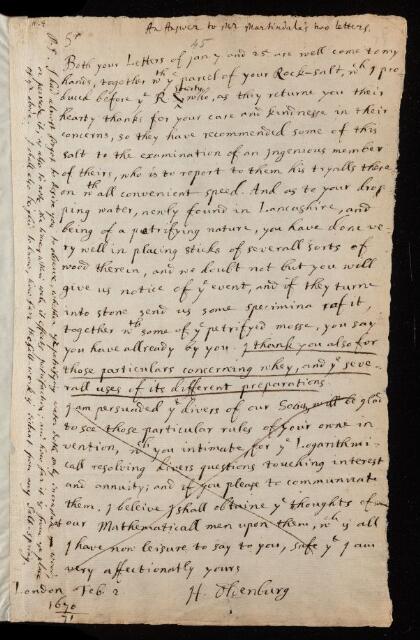 An Answer to Mr Martindale's two letters.
45
Sr
Both your Letters of jan 7 and 25 are well come to my
hands, together wth ye parcel of your Rock-salt, wch I pro-
duced before ye R. Society who, as they returne you their
hearty thanks for your care and kindnesse in their
concerns, so they have recommended some of this
salt to the examination of an Ingenious member
of theirs, who is to report to them his tryalls there-
on wth all convenient speed. And as to your drop-
ping water, newly found in Lancashire, and
being of a petrifying nature, you have done ve-
ry well in placing sticks of severall sorts of
wood therein, and we doubt not but you will
give us notice of ye event, and if they turne
into stone send us some specimina of it,
together wth some of ye petrifyed mosse, you say
you have allready by you. I thank you also for
those particulars concerning whey, and ye seve-
rall uses of its different preparations.
I am persuaded yt divers of our Society will be glad
to see those particular rules of your owne in-
vention, wch you intimate for ye Logarithmi-
call resolving divers questions touching interest
and annuity; and if you please to communicate
them, I beleive I shall obtaine ye thoughts of
our Mathematicall men upon them, wch is all
I have now leisure to say to you, safe yt I am
very affectionately yours
H. Oldenburg
London Feb. 2
1670/71
P.S. I had almost forgot to desire you to observe, whether ye petrifying water